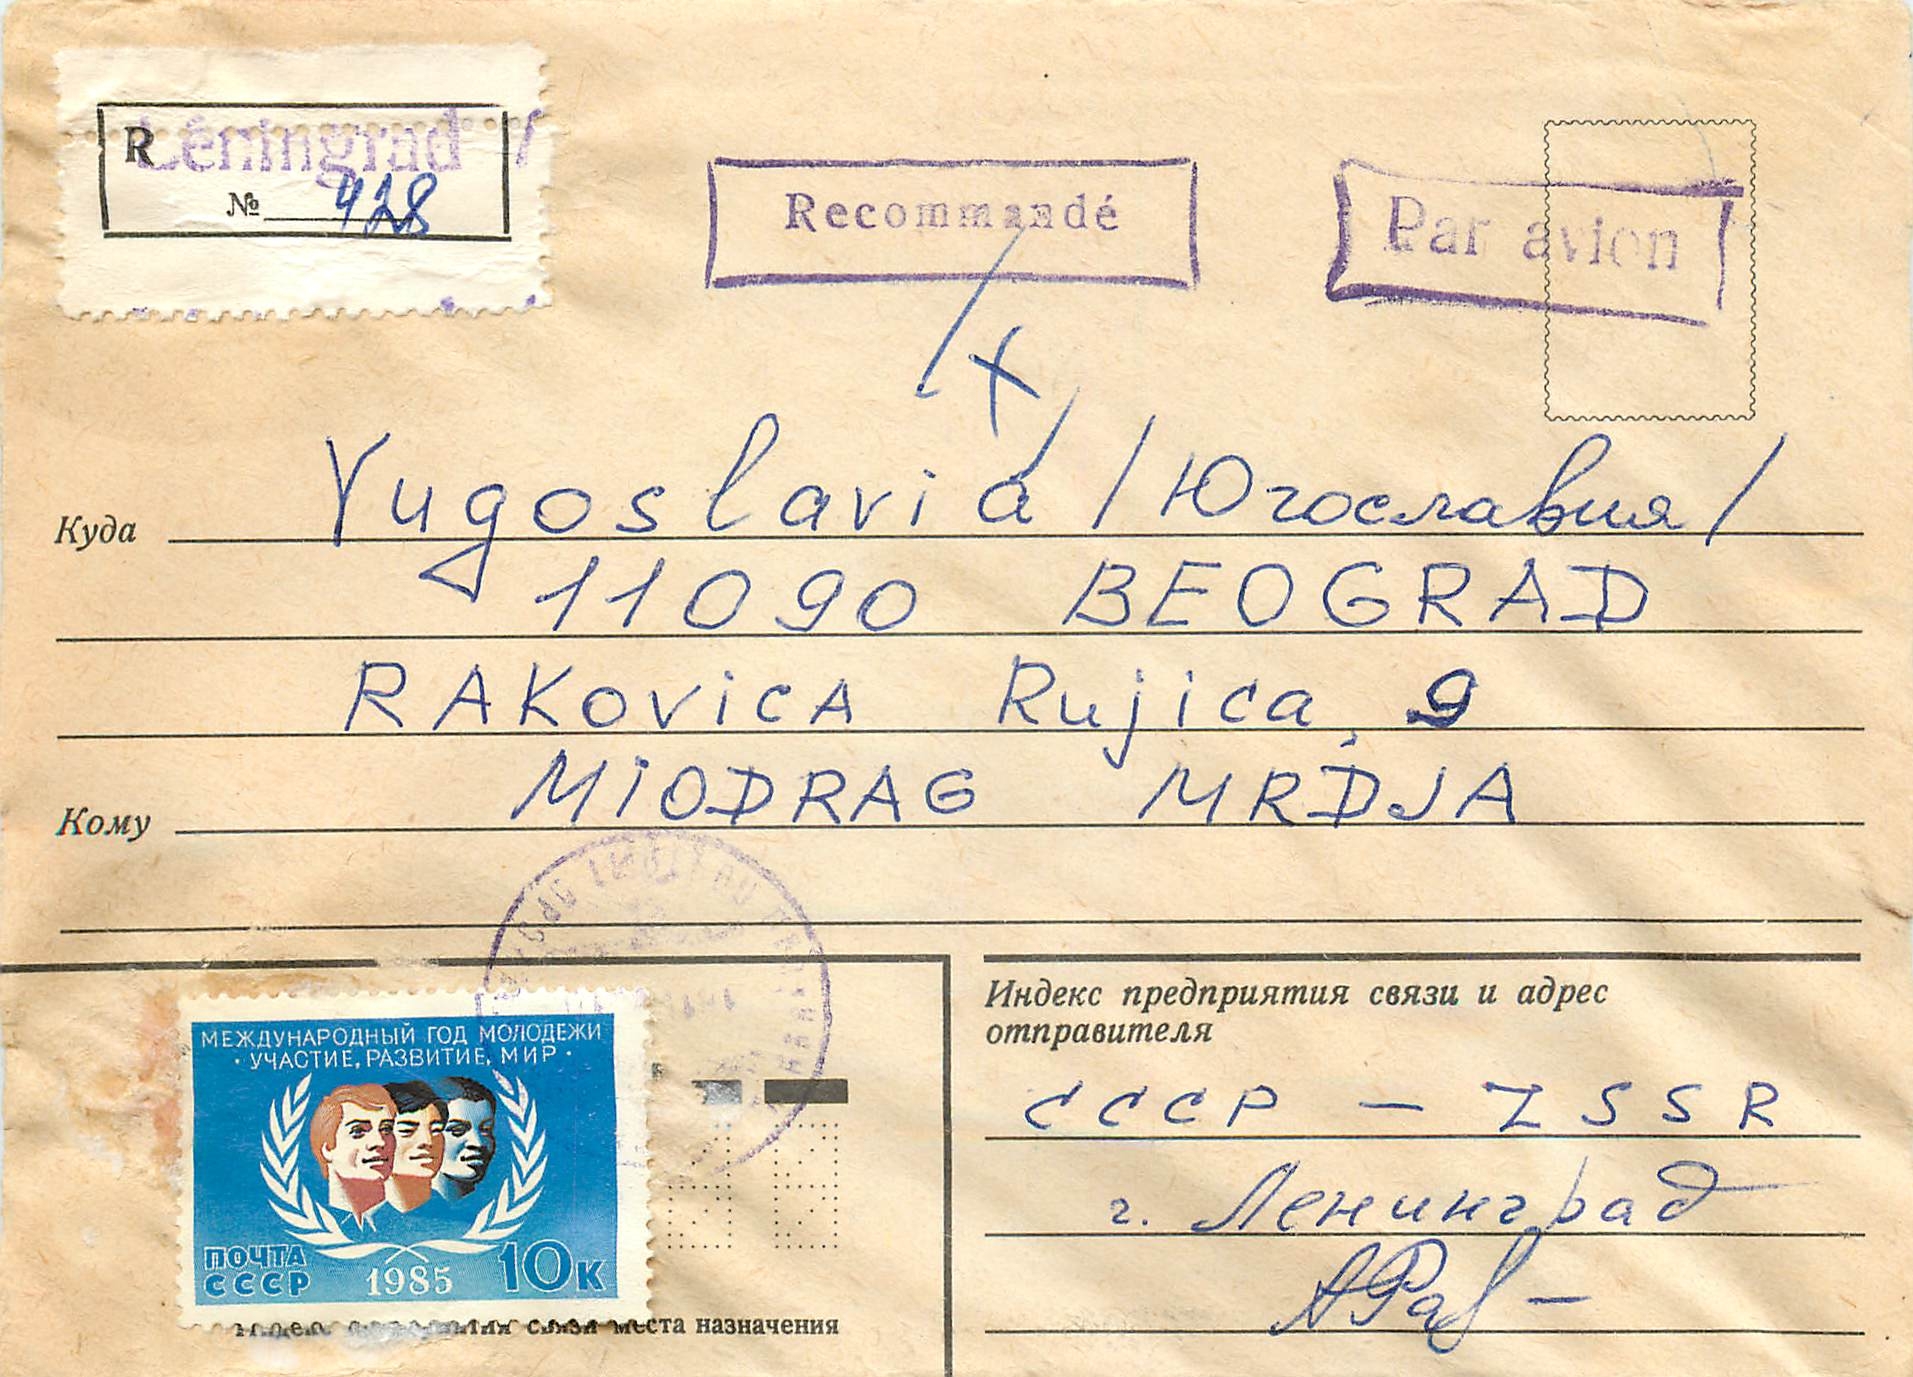 R Léningrad
№ 428
Recommandé
Par avion
Куда Yugoslavia /Югославия/
11090 BEOGRAD
RAKOVICA Rujica 9
Кому MIODRAG MRDJA
МЕЖДУНАРОДНЫЙ ГОД МОЛОДЕЖИ
· УЧАСТИЕ, РАЗВИТИЕ, МИР ·
ПОЧТА
СССР 1985 10К
связи места назначения
Индекс предприятия связи и адрес
отправителя
СССР — ZSSR
г. Ленинград